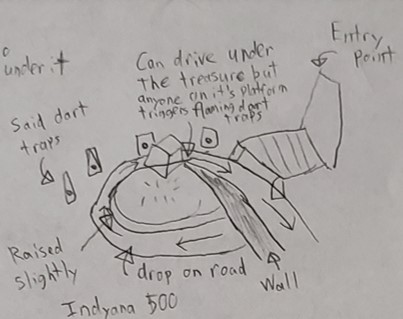 under it
Can drive under
the treasure but
anyone on it's platform
triggers flaming dart
traps
Entry
point
Said dart
traps
Raised
slightly
drop on road
Wall
Indyana 500